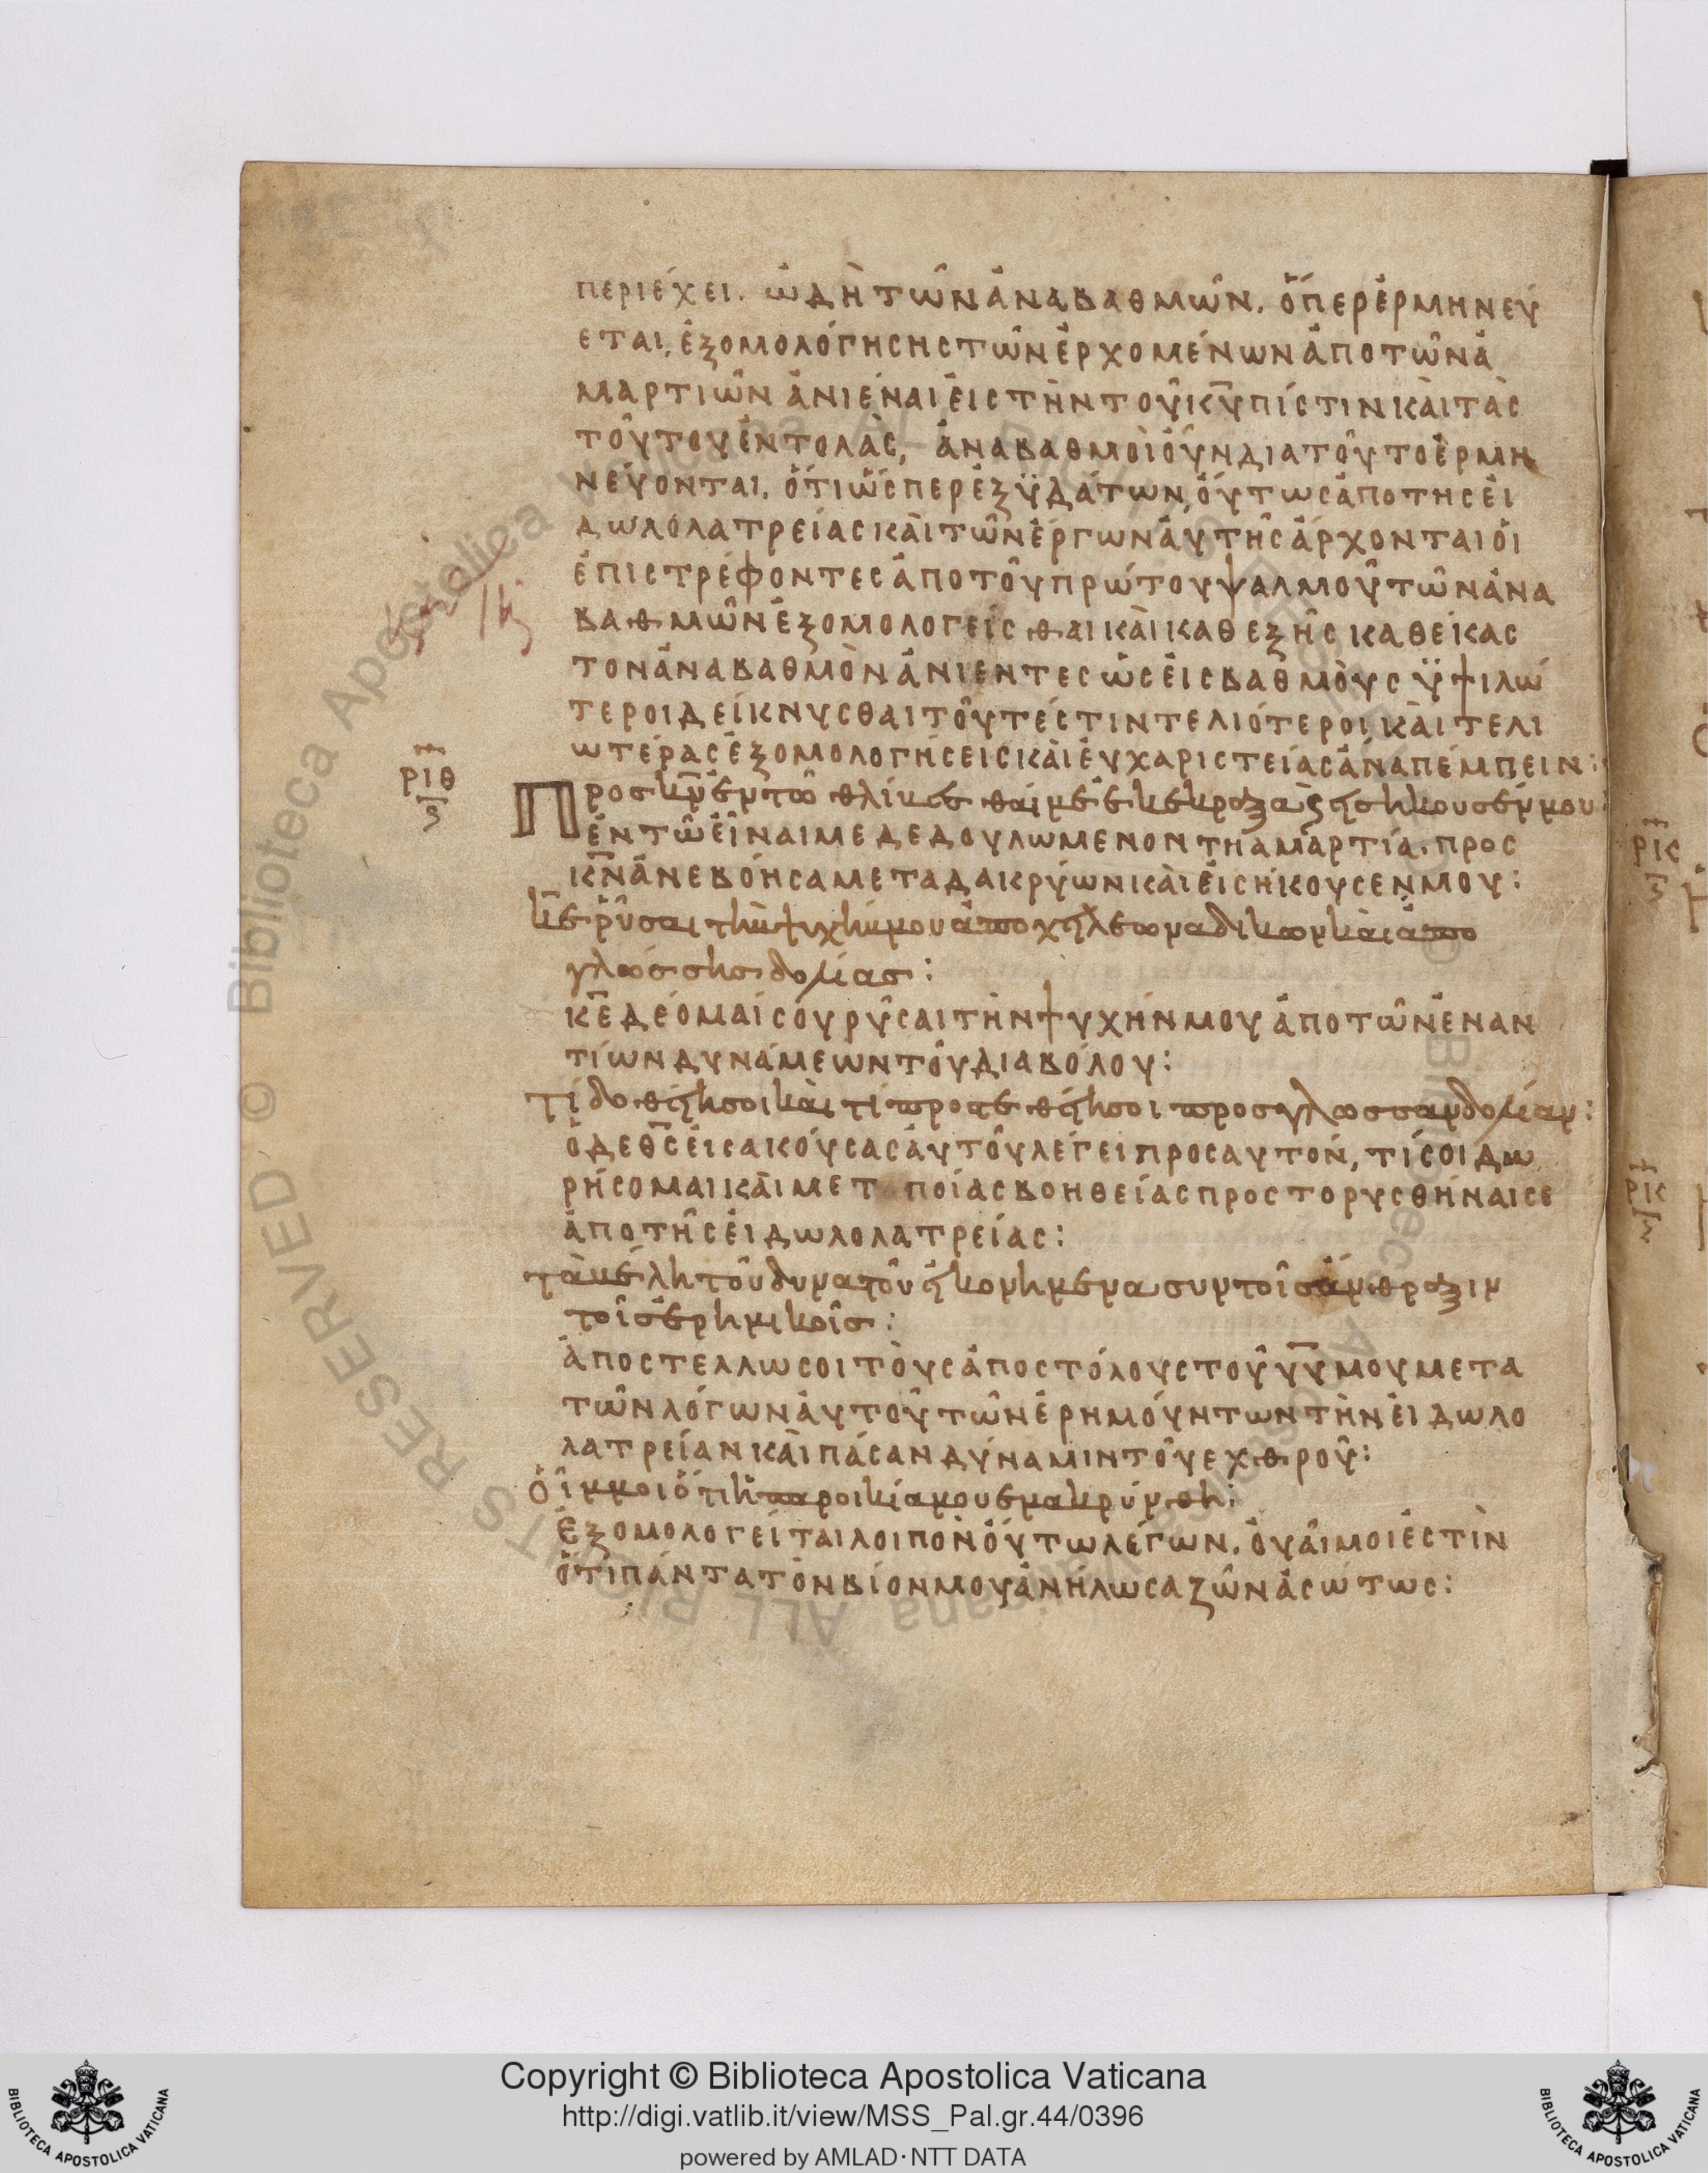 περιέχει. ὠδὴ τῶν ἀναβαθμῶν. ὅπερ ἑρμηνεύ
εται, ἐξομολόγησης τῶν ἐρχομένων ἀπὸ τῶν ἁ
μαρτιῶν ἀνιέναι εἰς τὴν τοῦ κ̅υ̅ πίστιν καὶ τὰς
τούτου ἐντολάς, ἀναβαθμοὶ οὖν διατοῦτο ἑρμη
νεύονται, ὅτι ὥσπερ ἐξ ὑδάτων, οὕτως ἀπὸ της εἰ
δωλολατρείας καὶ τῶν ἔργων αὐτῆς ἄρχονται οἱ
ἐπιστρέφοντες ἀπο τοῦ πρώτου ψαλμοῦ τῶν ἀνα
βαθμῶν ἐξομολογείσθαι καὶ καθεξῆς καθείκας
τον ἀναβαθμὸν ἀνιεντες ὡς εἰς βαθμοὺς ὑψιλώ
τεροι δείκνυσθαι τοῦτέστιν τελιότεροι, καὶ τελι
ωτέρας ἐξομολογήσεις καὶ εὐχαριστείας ἀναπέμπειν:
ριθ
ϛ
Προς κ̅ν̅ ἐν τῶ θλίβεσθαί με ἐκεκραξα καὶ εἰσηκουσέν μου:
ἐν τῶ εἶναι με δεδουλωμενον τη αμαρτία, προς
κ̅ν̅ ἀνεβόησα μετα δακρύων καὶ εἰσήκουσεν μου:
κ̅ε̅ ῥῦσαι τὴν ψυχήν μου ἀπο χειλεων αδικων καὶ ἀπο
γλώσσης δολίας:
κ̅ε̅ δεόμαί σου ρῦσαι τὴν ψυχήν μου ἀπο τῶν ἐναν
τίων δυνάμεων τοῦ διαβόλου:
τί δοθείη σοι καὶ τί προστεθείη σοι προς γλωσσαν δολίαν:
ὁ δε θ̅ς̅ εἰσακούσας αὐτοῦ λέγει προς αυτον, τί σοι δω
ρήσομαι καὶ μετ ποίας βοηθείας προς το ρυσθήναι σε
ἀπο τῆς εἰδωλολατρείας:
τὰ βέλη τοῦ δυνατοῦ ἠκονημενα συν τοῖς ἄνθραξιν
τοῖς ἐρημικοῖς:
ἀποστελλω σοι τοὺς ἀποστόλους τοῦ υ̅υ̅ μου μετα
τῶν λόγων αὐτοῦ τῶν ἐρημούντων τὴν εἰδωλο
λατρείαν καὶ πάσαν δύναμιν τοῦ εχθροῦ:
Οἶμμοι ὅτι ἡ παροικία μου εμακρύνθη:
ἐξομολογείται λοιπον οὕτω λέγων, οὐαῖ μοι ἐστὶν
ὅτι πάντα τὸν βίον μου ἀνήλωσα ζῶν ἀσώτως:
ρκ
ρκ
Copyright © Biblioteca Apostolica Vaticana
http://digi.vatlib.it/view/MSS_Pal.gr.44/0396
powered by AMLAD·NTT DATA
BIBLIOTECA APOSTOLICA VATICANA
BIBLIOTECA APOSTOLICA VATICANA